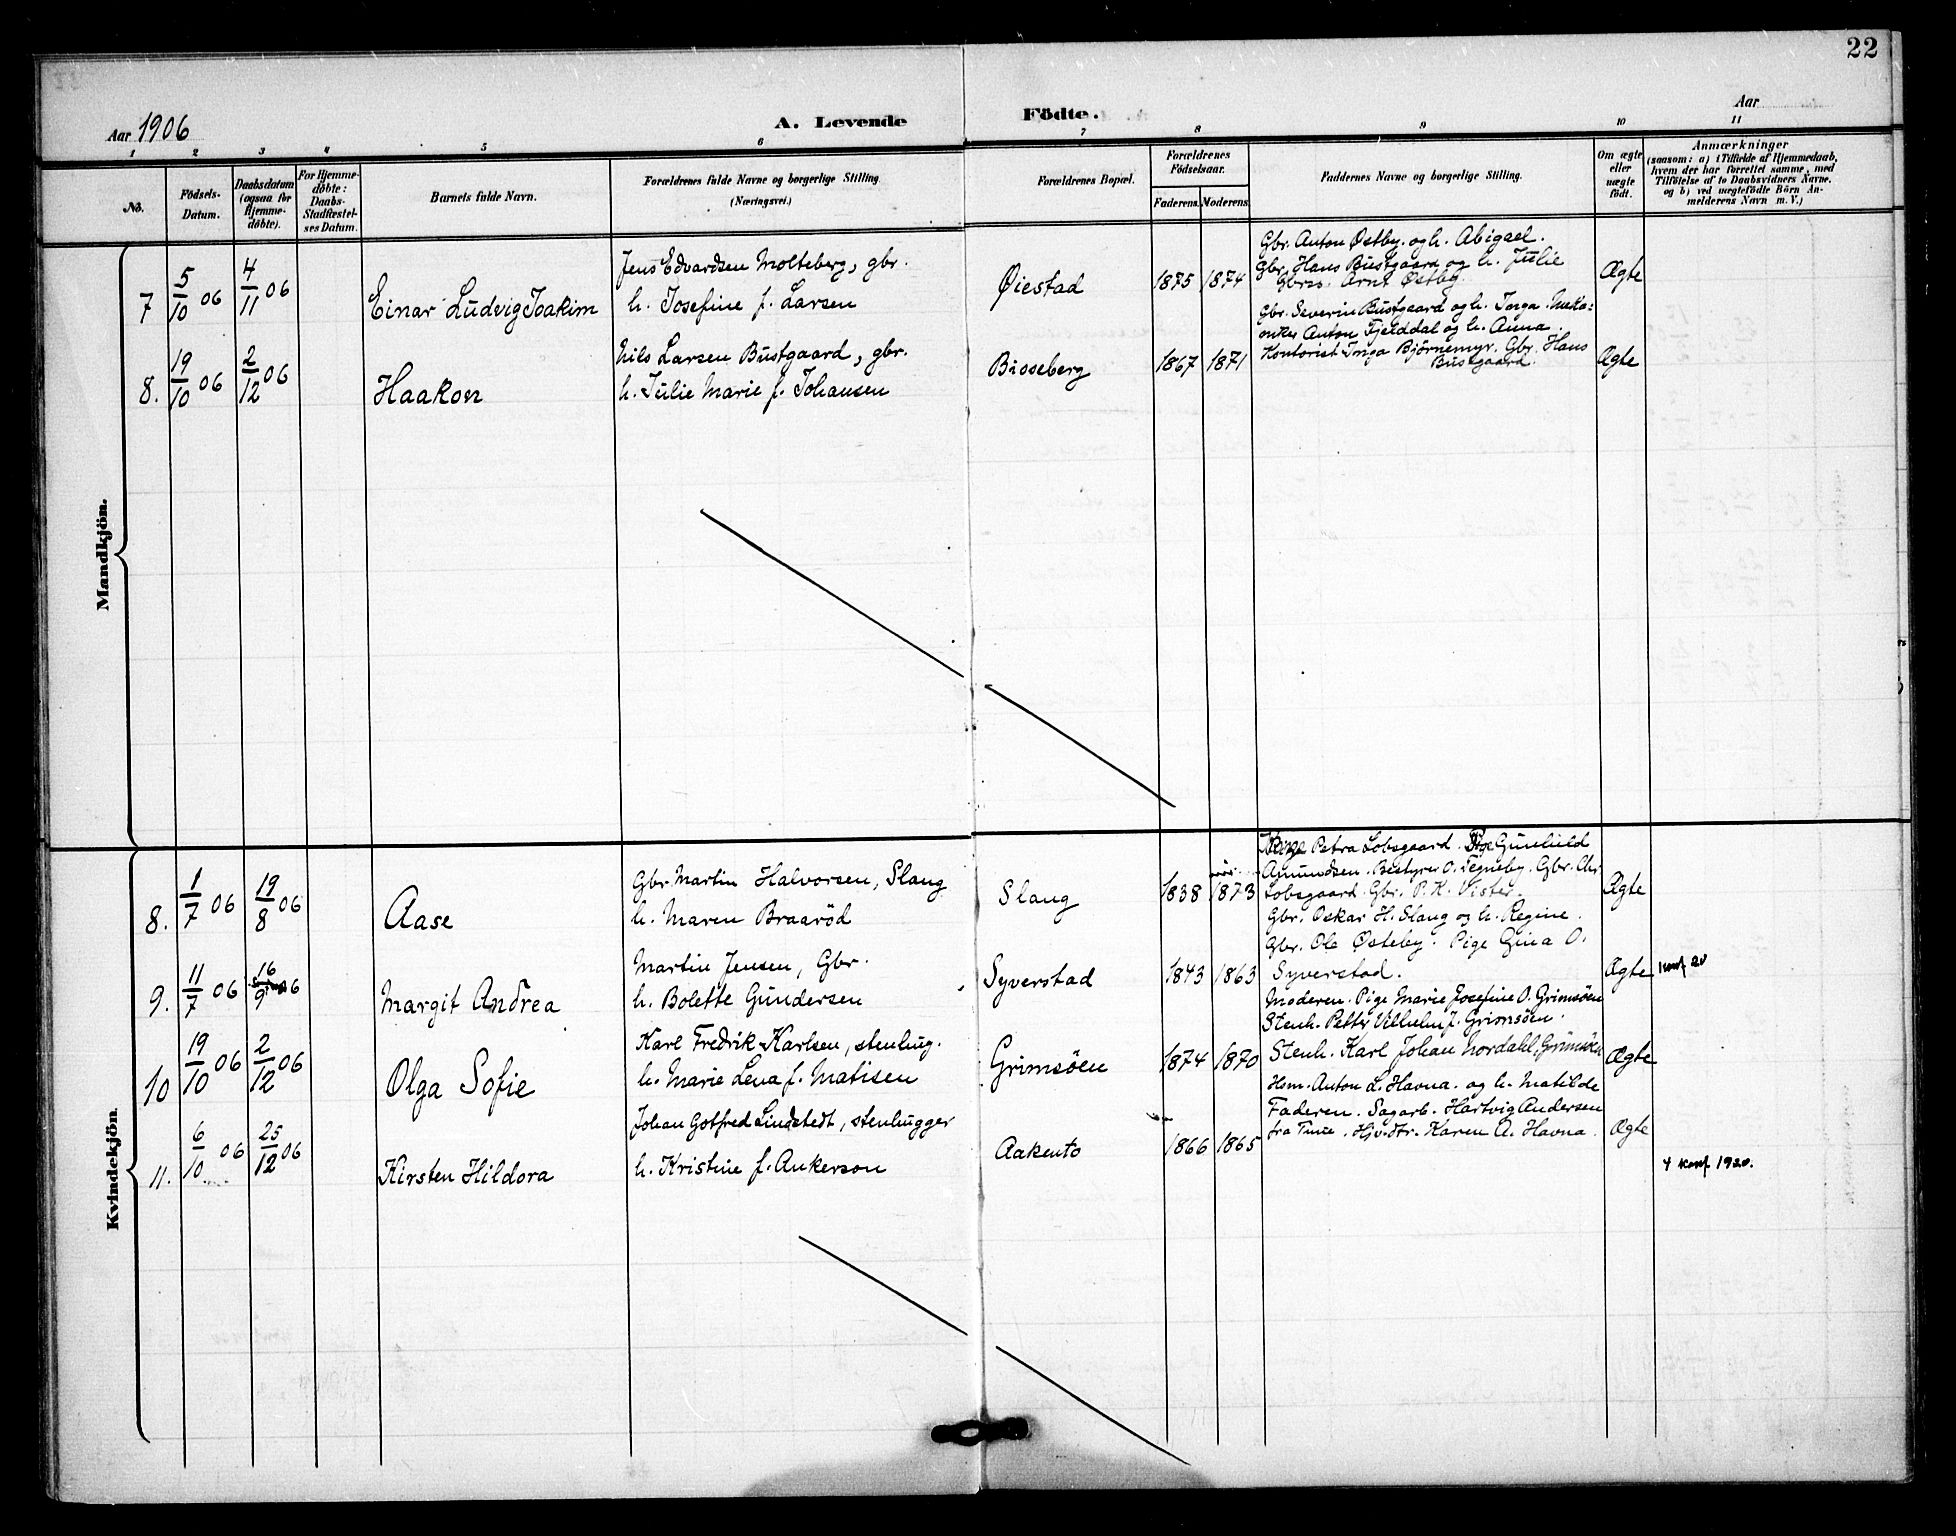 22
Aar 1906
A. Levende Födte.
Aar
1 2 3 4 5 6 7 8 9 10 11
No.
Födsels-Datum.
Daabsdatum (ogsaa for Hjemme-döbte).
For Hjemme-döbte: Daabs-Stadfæstel-ses Datum.
Barnets fulde Navn.
Forældrenes fulde Navne og borgerlige Stilling (Næringsvei.)
Forældrenes Bopæl.
Forældrenes Födselsaar.
Faderens. Moderens.
Faddernes Navne og borgerlige Stilling.
Om ægte eller uægte födt.
Anmærkninger
(saasom: a) i Tilfælde af Hjemmedaab,
hvem der har forrettet samme, med
Tilföielse af to Daabsvidners Navne,
og b) ved uægtefödte Börn An-
melderens Navn m. V.)
Mandkjön.
7 5/10 06 4/11 06 Einar Ludvig Joakim
Jens Edvardsen Molteberg, gbr.
h. Josefine f. Larsen
Øiestad 1875 1874
Gbr. Anton Østby. og h. Abigael.
Gbr. Hans Bustgaard og h. Julie
Gbrsø. Arne Østby.
Ægte
8. 19/10 06 2/12 06 Haakon
Nils Larsen Bustgaard, gbr.
h. Julie Marie f. Johansen
Bisseberg 1867 1871
Gbr. Severin Bustgaard og h. Inga. Meka-
niker Anton Fjelddal og h. Anna.
Kontorist Inga Björnemyr. Gbr. Hans
Bustgaard.
Ægte
Kvindekjön.
8. 1/7 06 19/8 06 Aase
Gbr. Martin Halvorsen, Slang
h. Maren Braaröd
Slang 1838 1873
Petra Lobsgaard. Pige Gunhild
Amundsen. Bestyrer O. Tegneby. Gbr. Chr.
Lobsgaard. Gbr. P. K. Vister.
Gbr. Oskar H. Slang og h. Regine.
Ægte
9. 11/7 06 16/9 06 Margit Andrea
Martin Jensen, Gbr.
h. Bolette Gundersen
Syverstad 1843 1863
Gbr. Ole Østeby. Pige Gina O.
Syverstad.
Ægte
Konf 20
10 19/10 06 2/12 06 Olga Sofie
Karl Fredrik Karlsen, stenhug.
h. Marie Lena f. Matisen
Grimsöen 1874 1870
Moderen. Pige Marie Josefine O. Grimsöen
Stenh. Petter Vilhelm J. Grimsöen.
Stenh. Karl Johan Nordahl, Grimsöen
Ægte
11. 6/10 06 25/12 06 Kirsten Hildora
Johan Gotfred Lindstedt, stenhugger
h. Kristine f. Ankerson
Aakento 1866 1865
Hsm. Anton L. Havna. og h. Matilde
Faderen. Sagarb. Hartvig Andersen
fra Tune. Hjv. dtr. Karen A. Havna.
Ægte
Konf 1920.